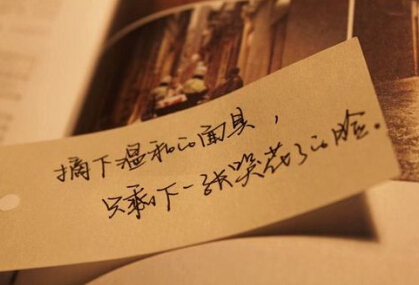 摘下温和的面具，
只剩下一张哭花了的脸.